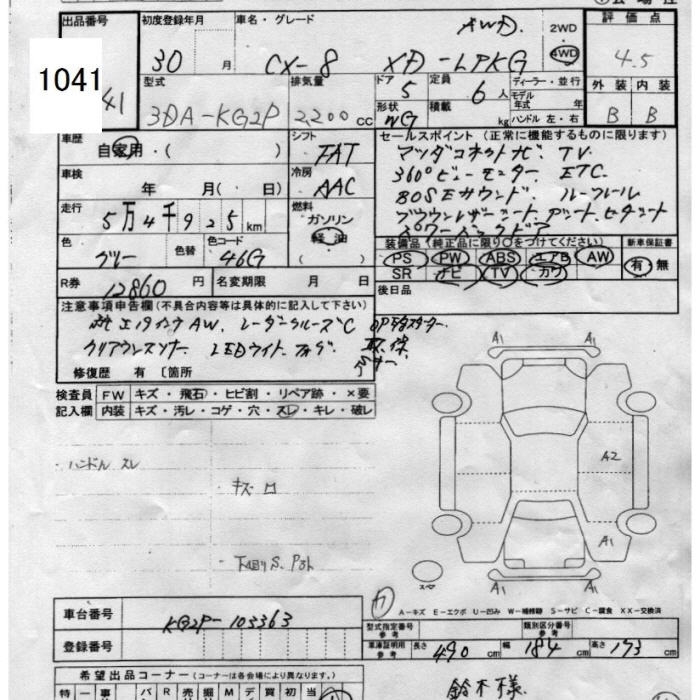 出品番号 初度登録年月 車名・グレード AWD. 2WD 評価点
1041 41 30 月 CX-8 XD-LPKG 4WD 4.5
型式 排気量 ドア 定員 ディーラー・並行 外装 内装
3DA-KG2P 2,200cc 5 6人 モデル年式 年 B B
形状 WG 積載 kg ハンドル 左・右
車歴 自家用・( ) シフト FAT
セールスポイント (正常に機能するものに限ります)
マツダコネクトナビ. TV.
360°ビューモニター ETC.
BOSEサウンド. ルーフレール
車検 年 月( 日) 冷房 AAC
走行 5万4千925km 燃料 ガソリン 軽油
パワーバックドア
色 グレー 色替 色コード 46G
装備品 (純正品に限り○をつけてください) 新車保証書
PS PW ABS エアB AW 有・無
SR ナビ TV カワ
R券 12860円 名変期限 月 日
後日品
注意事項申告欄 (不具合内容等は具体的に記入して下さい)
純正19インチAW. レーダークルーズC
クリアランスソナー LEDライト. フォグ
修復歴 有 〔箇所
検査員 FW キズ・飛石・ヒビ割・リペア跡・×要
記入欄 内装 キズ・汚レ・コゲ・穴・スレ・キレ・破レ
A1 A1
ハンドルスレ
キズ ロ
A2
A1
下廻りS.
A1 A1
スペア
カ
A-キズ E-エクボ U-凹み W-補修跡 S-サビ C-腐食 XX-交換済
車台番号 KG2P-103363
型式指定番号 参考 類別区分番号 参考
登録番号
車庫証明用 参考 長さ 490cm 幅 184cm 高さ 173cm
希望出品コーナー (コーナーは各会場により異なります。)
鈴木様.